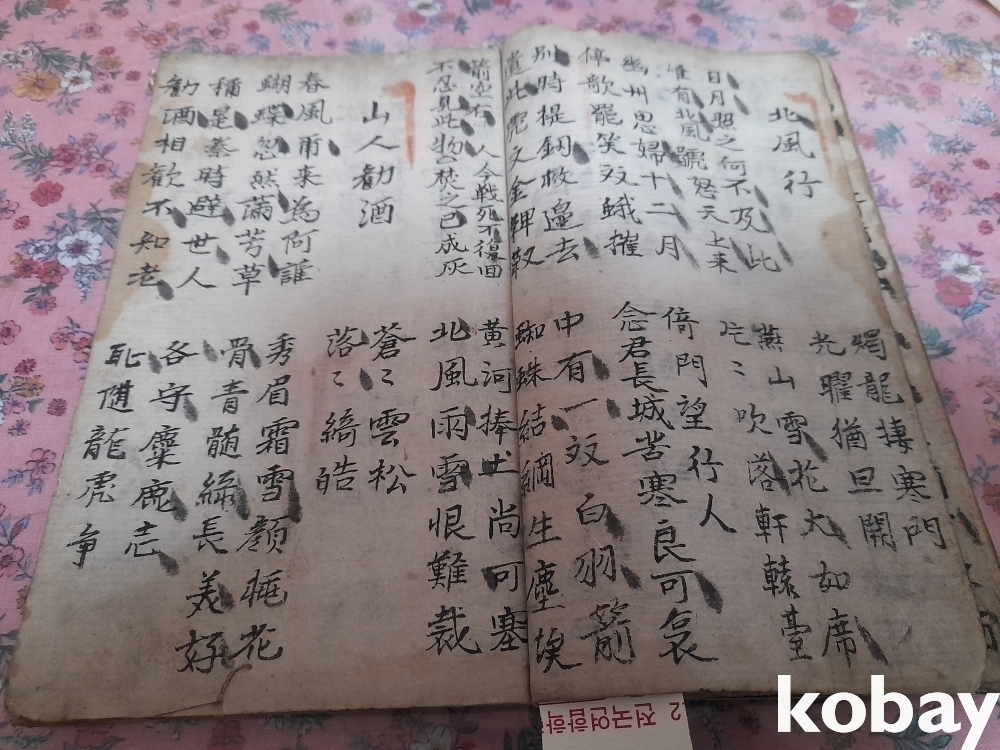 北風行
燭龍棲寒門
光曜猶旦開
日月照之何不及此
惟有北風號怒天上來
燕山雪花大如席
片〻吹落軒轅臺
幽州思婦十二月
停歌罷笑双蛾摧
倚門望行人
念君長城苦寒良可哀
別時提釼救邊去
遺此虎文金鞞靫
中有一双白羽箭
蜘蛛結網生塵埃
箭空在 人今戰死不復回
不忍見此物焚之已成灰
黃河捧土尚可塞
北風雨雪恨難裁
山人勸酒
蒼〻雲松
落〻綺皓
春風爾來為何誰
蝴蝶忽然滿芳草
秀眉霜雪顏桃花
骨青髓綠長美好
稱是秦時避世人
勸酒相歡不知老
各守麋鹿志
恥随龍虎爭
2 전국연합학
kobay